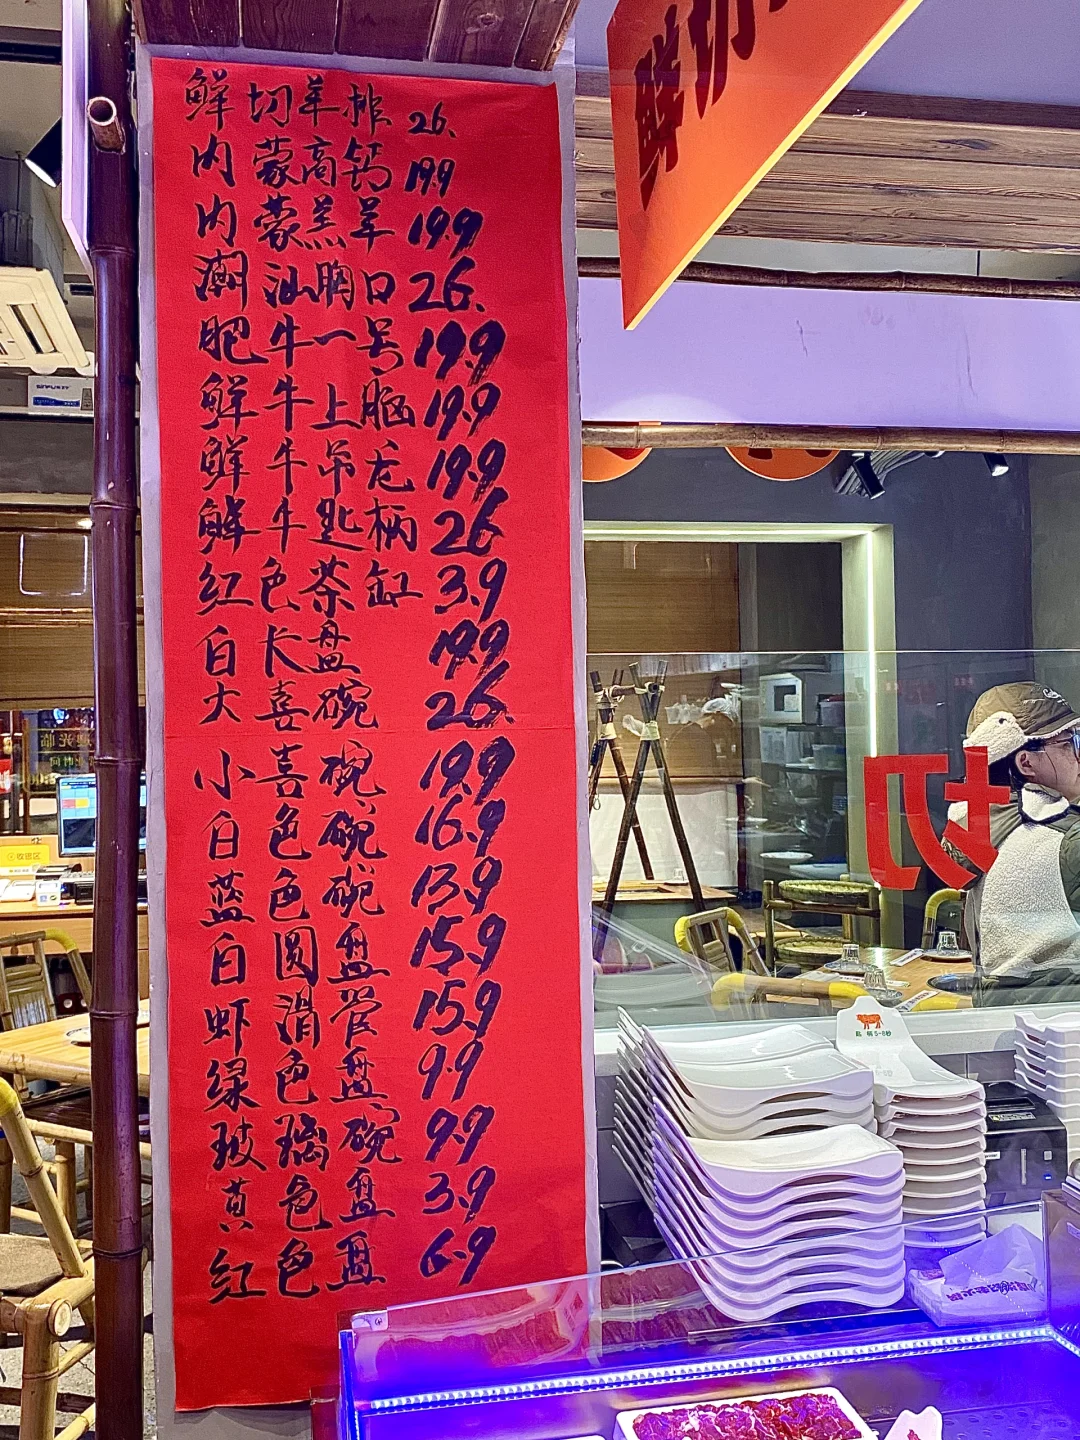 鲜切羊排 26.
内蒙高钙 199
内蒙羔羊 19.9
潮汕胸口 26.
肥牛一号 19.9
鲜牛上脑 19.9
鲜牛吊龙 19.9
鲜牛匙柄 26
红色茶缸 3.9
白长盘 19.9
大喜碗 26.
小喜碗 19.9
白色碗 16.9
蓝色碗 13.9
白圆盘 15.9
虾滑管 15.9
绿色盘 9.9
玻璃碗 9.9
黄色盘 3.9
红色盘 6.9
鲜切
切
收银区